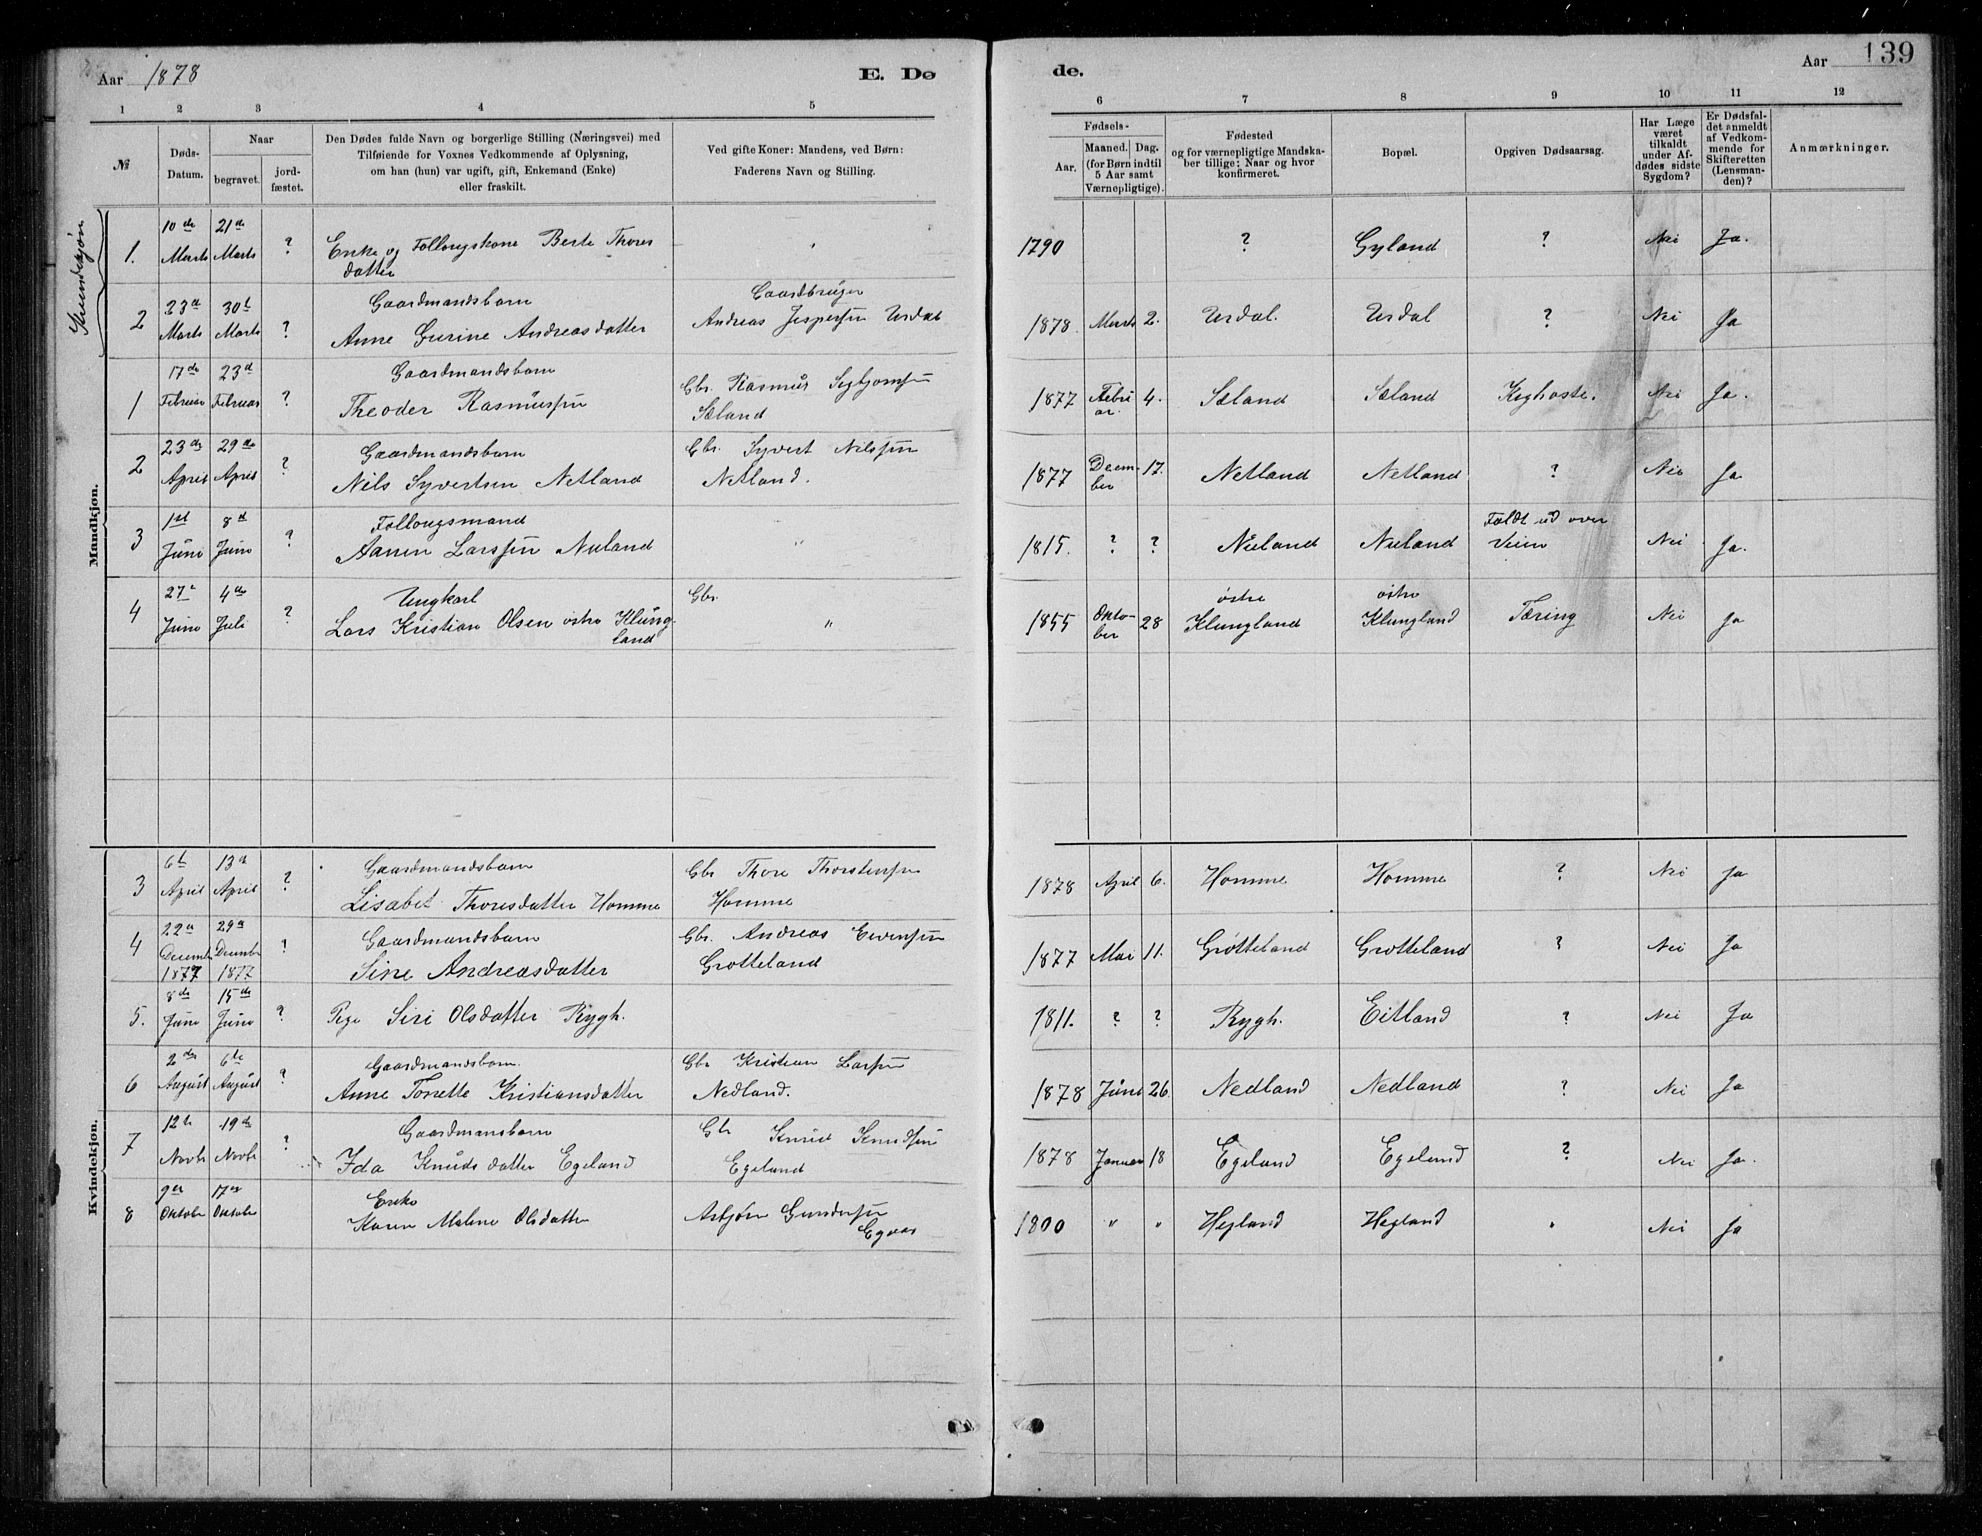 Aar 1878
E. Dø
de.
Aar
139
1 2 3 4 5 6 7 8 9 10 11 12
№
Døds-
Datum.
Naar
begravet.
jord-
fæstet.
Den Dødes fulde Navn og borgerlige Stilling (Næringsvei) med
Tilføiende for Voxnes Vedkommende af Oplysning,
om han (hun) var ugift, gift, Enkemand (Enke)
eller fraskilt.
Ved gifte Koner: Mandens, ved Børn:
Faderens Navn og Stilling.
Fødsels-
Aar.
Maaned. Dag.
(for Børn indtil
5 Aar samt
Værnepligtige).
Fødested
og for værnepligtige Mandska-
ber tillige: Naar og hvor
konfirmeret.
Bopæl.
Opgiven Dødsaarsag.
Har Læge
været
tilkaldt
under Af-
dødes sidste
Sygdom?
Er Dødsfal-
det anmeldt
af Vedkom-
mende for
Skifteretten
(Lensman-
den)?
Anmærkninger.
Kvindekjøn
1. 10de Marts 21de Marts ? Enke og Follougskone Berte Thores
datter
1790 ? Gyland ? Nei Ja.
2 23d Marts 30t Marts ? Gaardmandsbarn
Anne Gurine Andreasdatter
Gaardbruger
Andreas Jespersen Urdal
1878 Marts 2. Urdal. Urdal ? Nei Ja
Mandkjøn.
1 17de Februar 23d Februar ? Gaardmandsbarn
Theoder Rasmussen
Gbr. Rasmus Sigbjørnsen
Sæland
1877 Febru
ar. 4. Sæland Sæland Kighoste. Nei Ja.
2 23de April 29de April ? Gaardmandsbarn
Nils Syvertsen Netland
Gbr. Syvert Nilssen
Netland.
1877 Decem-
ber 17. Netland Netland ? Nei Ja
3 1st Juni 8d Juni ? Follougsmand
Aanen Larssen Nuland
"
1815. ? ? Nuland Nuland Faldt ud over
Veien Nei Ja.
4 27d Juni 4de Juli ? Ungkarl
Lars Kristian Olsen østre Klung-
land
Gbr.
"
1855 Okto-
ber 28 østre
Klungland østre
Klungland Tæring Nei Ja
Kvindekjøn.
3 6t April 13d April ? Gaardmandsbarn
Lisabet Thoresdatter Homme
Gbr Thore Thorstensen
Homme
1878 April 6. Homme Homme ? Nei Ja
4 22d Decembr
1877 29d Decembr
1877 ? Gaardmandsbarn
Sine Andreasdatter
Gbr. Andreas Evensen
Grøtteland
1877 Mai 11. Grøtteland Grøtteland ? Nei Ja
5. 8de Juni 15de Juni ? Pige Siri Olsdatter Rygh.
1811. ? ? Rygh. Eitland ? Nei Ja
6 2de August 6te August ? Gaardmandsbarn
Anne Tonette Kristiansdatter
Gbr Kristian Larsen
Nedland.
1878 Juni 26. Nedland Nedland ? Nei Ja
7 12te Novbr 19de Novbr ? Gaardmansbarn
Ida Knudsdatter Egeland
Gbr Knud Knudsen
Egeland
1878 Januar 18 Egeland Egeland ? Nei Ja.
8 9de Oktober 17de Oktober Enke
Karen Malene Olsdatter
Asbjørn Gundersen
Egaas
1800 " " Hegland Hegland " Nei Ja